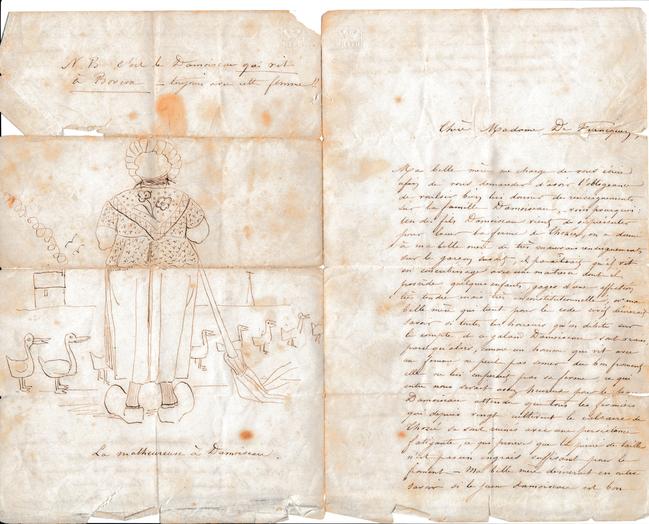 N B C'est le Damoiseau qui vit
à Borson — toujours avec cette femme !!
La malheureuse à Damoiseau.
Chère Madame De
Ma belle mère me charge de vous écrire
afin de vous demander d'avoir l'obligeance
de vouloir bien lui donner de renseignements
sur la famille Damoiseau : voici pourquoi :
un des fils Damoiseau vient de se présenter
pour louer la ferme de Thorey, on a donné
à ma belle mère de très mauvais renseignements
sur le garçon susdit, il paraîtrait qu'il vit
en concubinage avec une maîtresse dont il
possède quelques enfants, gages d'une affection
très tendre mais un
belle mère qui tient pour le code civil désirerait
savoir si toutes les horreurs qu'on débite sur
le compte de ce galant Damoiseau sont vraies,
parce qu'alors, comme un homme qui vit avec
une femme ne peut pas semer du bon froment
elle ne lui
entre nous serait pour les
Damoiseau attendu que tous les fermiers
qui depuis vingt cultivent le calcaire de
Thorey se sont ruinés avec une persistance
fatigante, ce qui prouve que la pierre de taille
n'est pas un engrais suffisant pour le
froment — Ma belle mère désirerait en outre
savoir si le jeune damoiseau est bon